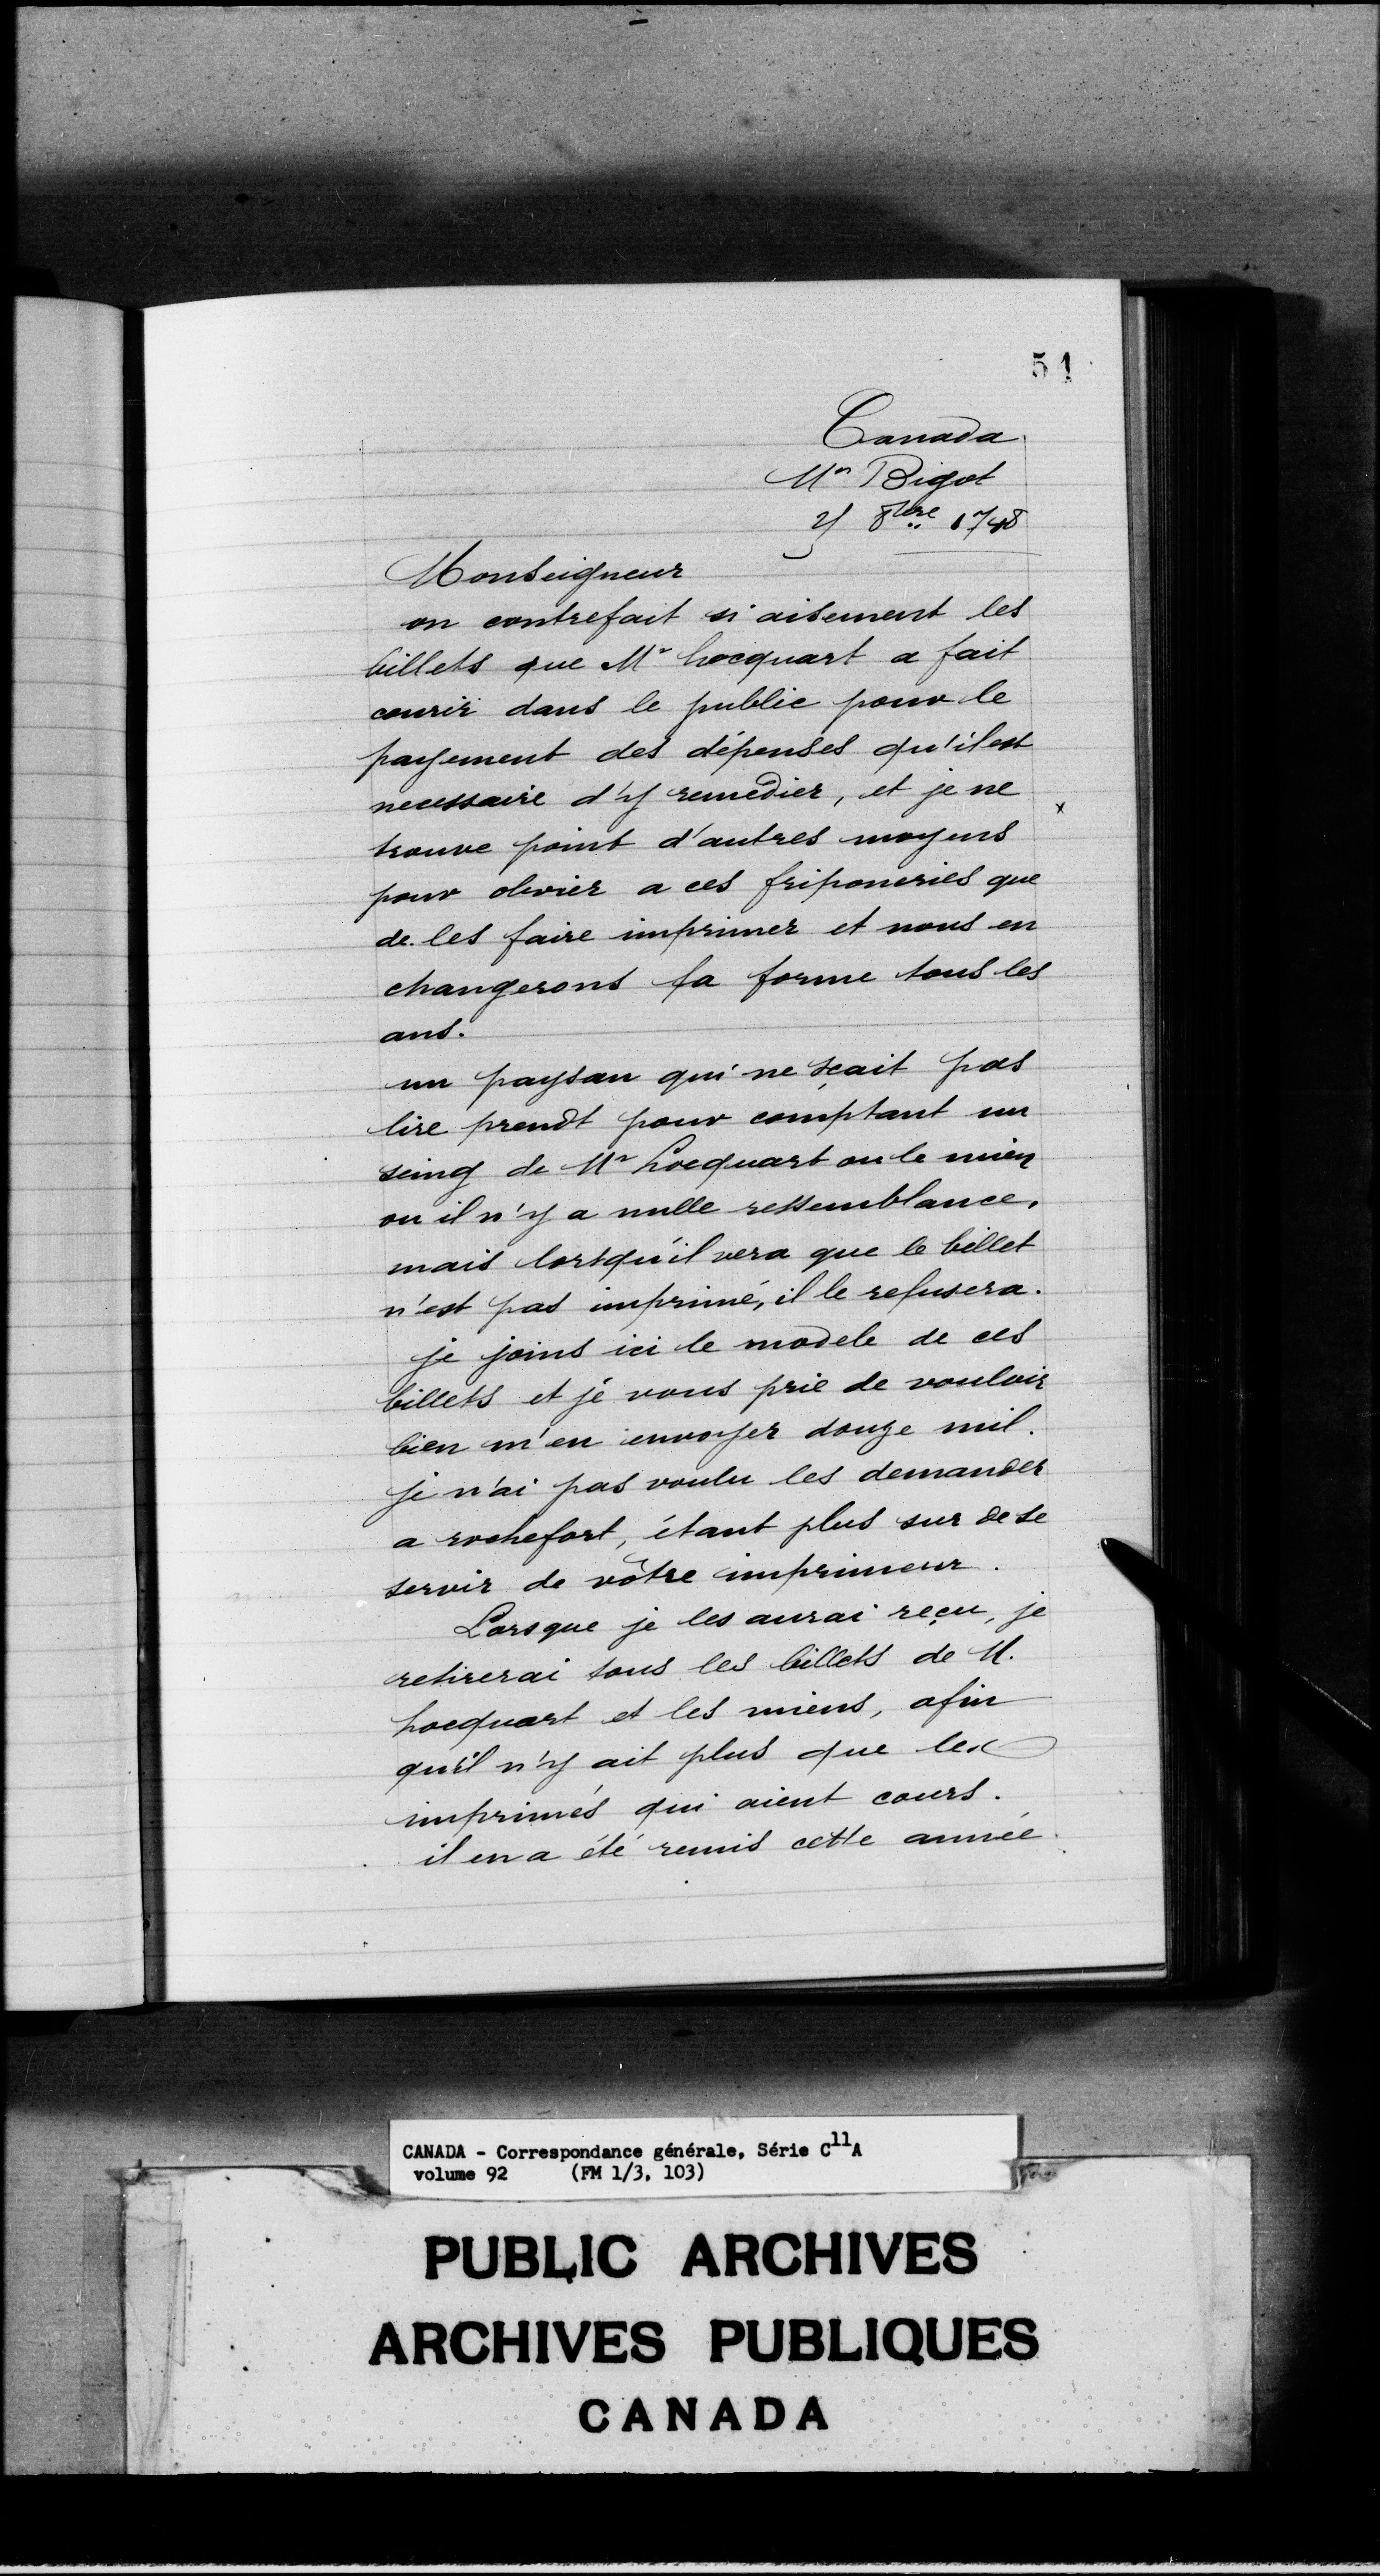 51
Canada
Mr Bigot
8bre 1748
Monseigneur
on contrefait si aisement les
billets que Mr hocquart a fait
courir dans le public pour le
payement des dépenses qu'il est
necessaire d'y remedier, et je ne x
trouve point d'autres moyens
pour obvier a ces friponeries que
de les faire imprimer et nous en
changerons la forme tous les
ans.
un paysan qui ne sçait pas
lire prendt pour comptant un
seing de Mr hocquart ou le mien
ou il n'y a nulle ressemblance,
mais lorsqu'il vera que le billet
n'est pas imprimé, il le refusera.
je joins ici le modele de ces
billets et je vous prie de vouloir
bien m'en envoyer douze mil.
je n'ai pas voulu les demander
a rochefort, étant plus sur de se
servir de vôtre imprimeur.
Lorsque je les aurai reçu, je
retirerai tous les billets de M.
hocquart et les miens, afin
qu'il n'y ait plus que les
imprimés qui aient cours.
il en a été remis cette année
CANADA - Correspondance générale, Série C11A
volume 92 (FM 1/3, 103)
PUBLIC ARCHIVES
ARCHIVES PUBLIQUES
CANADA